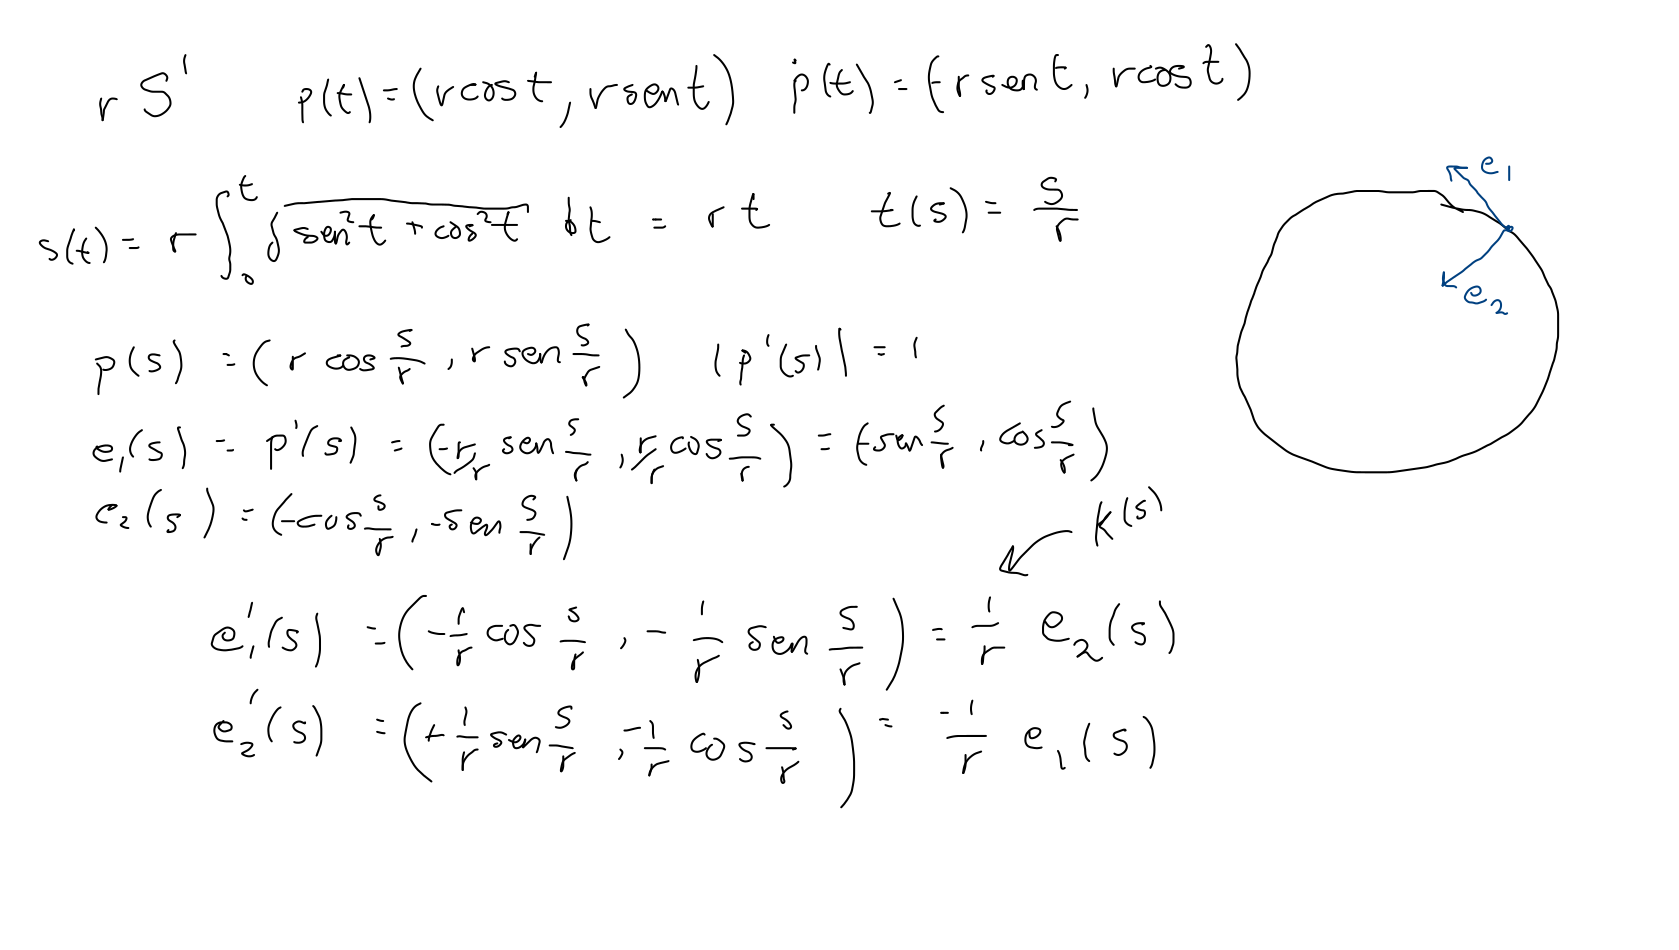 r S' p(t) = (r cos t, r sen t) ṗ(t) = (-r sen t, r cos t)
s(t) = r ∫₀ᵗ √(sen²t + cos²t) dt = r t t(s) = s/r
e₁
e₂
p(s) = (r cos s/r, r sen s/r) |p'(s)| = 1
e₁(s) = p'(s) = (-r/r sen s/r, r/r cos s/r) = (-sen s/r, cos s/r)
e₂(s) = (-cos s/r, -sen s/r)
K(s)
e₁'(s) = (-1/r cos s/r, -1/r sen s/r) = 1/r e₂(s)
e₂'(s) = (+1/r sen s/r, -1/r cos s/r) = -1/r e₁(s)